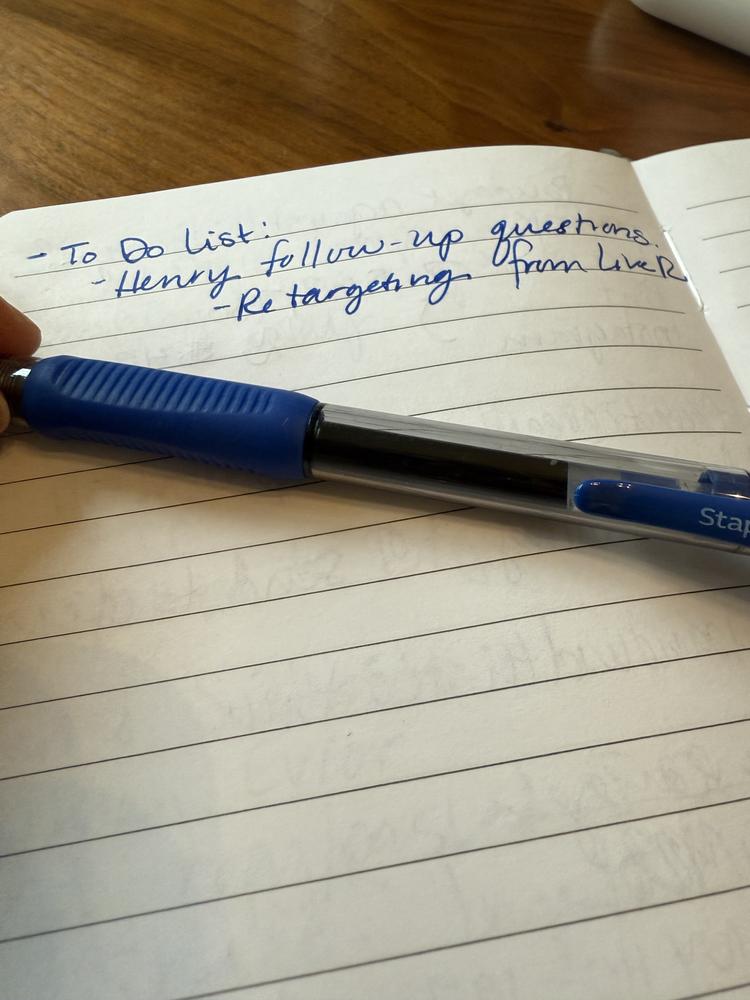 - To Do List:
- Henry follow-up questions.
- Retargeting from LiveR
Stap